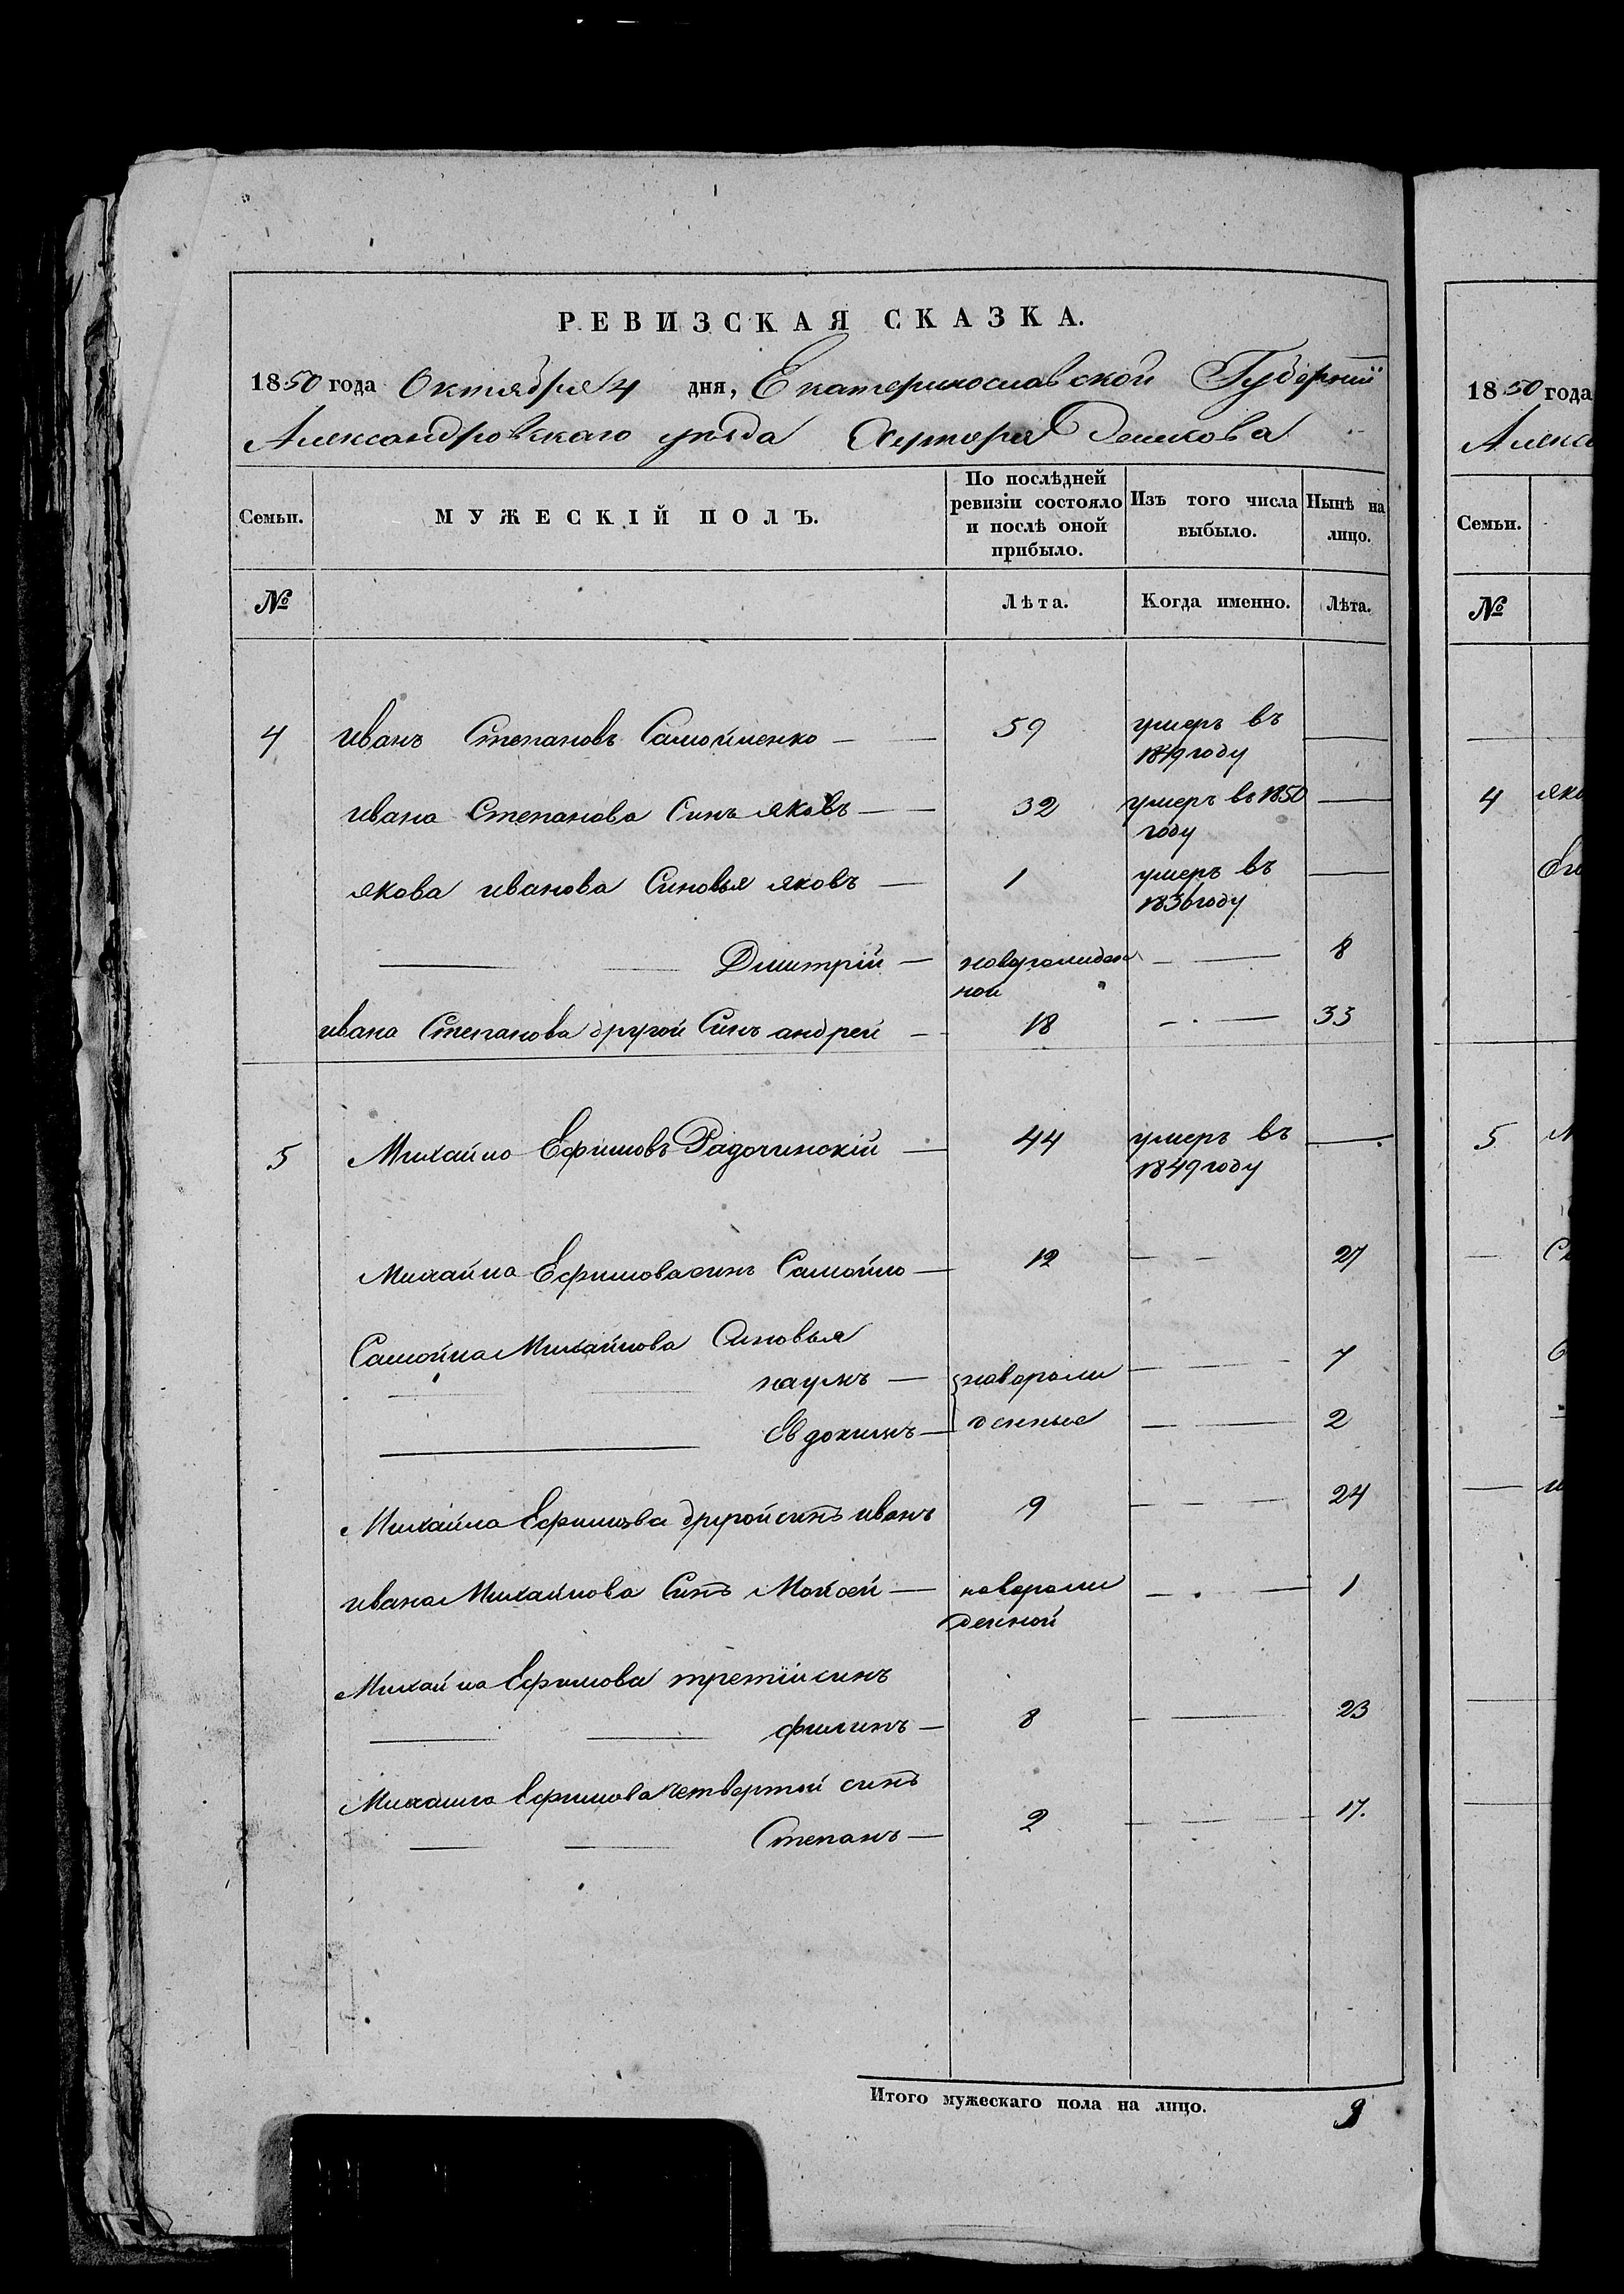 РЕВИЗСКАЯ СКАЗКА.
1850 года Октября 4 дня, Екатеринославской Губернии
Александровскаго уезда Хутора
Семьи.
МУЖЕСКІЙ ПОЛЪ.
По послѣдней ревизіи состояло и послѣ оной прибыло.
Изъ того числа выбыло.
Нынѣ на лицо.
№
Лѣта.
Когда именно.
Лѣта.
4 иванъ Степановъ Самойленко — 59 умеръ въ 1849 году —
ивана Степанова Синъ яковъ — 32 умеръ въ 1850 году —
якова иванова Синовья яковъ — 1 умеръ въ 1836 году —
Дмитрій — новорожденной — 8
ивана Степанова другой Синъ андрей — 18 — 33
5 Михайло Ефимовъ Радочинскій — 44 умеръ въ 1849 году —
Михайла Ефимова синъ Самойло — 12 — 27
Самойла Михайлова Синовья
наумъ — новорож — 7
Евдокимъ — денные — 2
Михайла Ефимова другой синъ иванъ 9 — 24
ивана Михайлова Синъ Мойсей — новорожденной — 1
Михайла Ефимова третій синъ
филипъ — 8 — 23
Михайла Ефимова четвертой синъ
Степанъ — 2 — 17.
Итого мужескаго пола на лицо. 9
1850 года
Семьи.
№
4
5